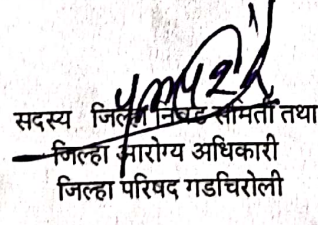 सदस्य जिल्हा निवड समिती तथा
जिल्हा आरोग्य अधिकारी
जिल्हा परिषद गडचिरोली